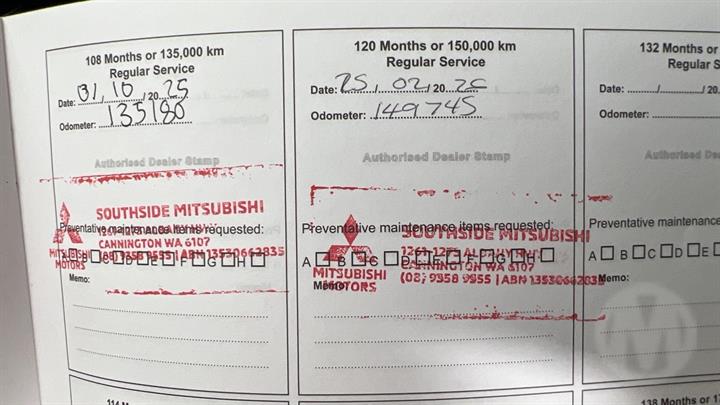 108 Months or 135,000 km
Regular Service
Date: 31, 10 / 20 25
Odometer: 135180
Authorised Dealer Stamp
SOUTHSIDE MITSUBISHI
Preventative maintenance items requested:
CANNINGTON WA 6107
A B C D E F G H
(08) 9358 9555 | ABN 13530662835
MITSUBISHI
MOTORS
Memo:
120 Months or 150,000 km
Regular Service
Date: 25 / 02 / 20 26
Odometer: 149745
Authorised Dealer Stamp
Preventative maintenance items requested:
SOUTHSIDE MITSUBISHI
A B C D E F G H
CANNINGTON WA 6107
MITSUBISHI
MOTORS
(08) 9358 9555 | ABN 13530662835
Memo:
132 Months or
Regular S
Date: / / 20
Odometer:
Authorised De
Preventative maintenance
A B C D E
Memo:
M
138 Months or 1